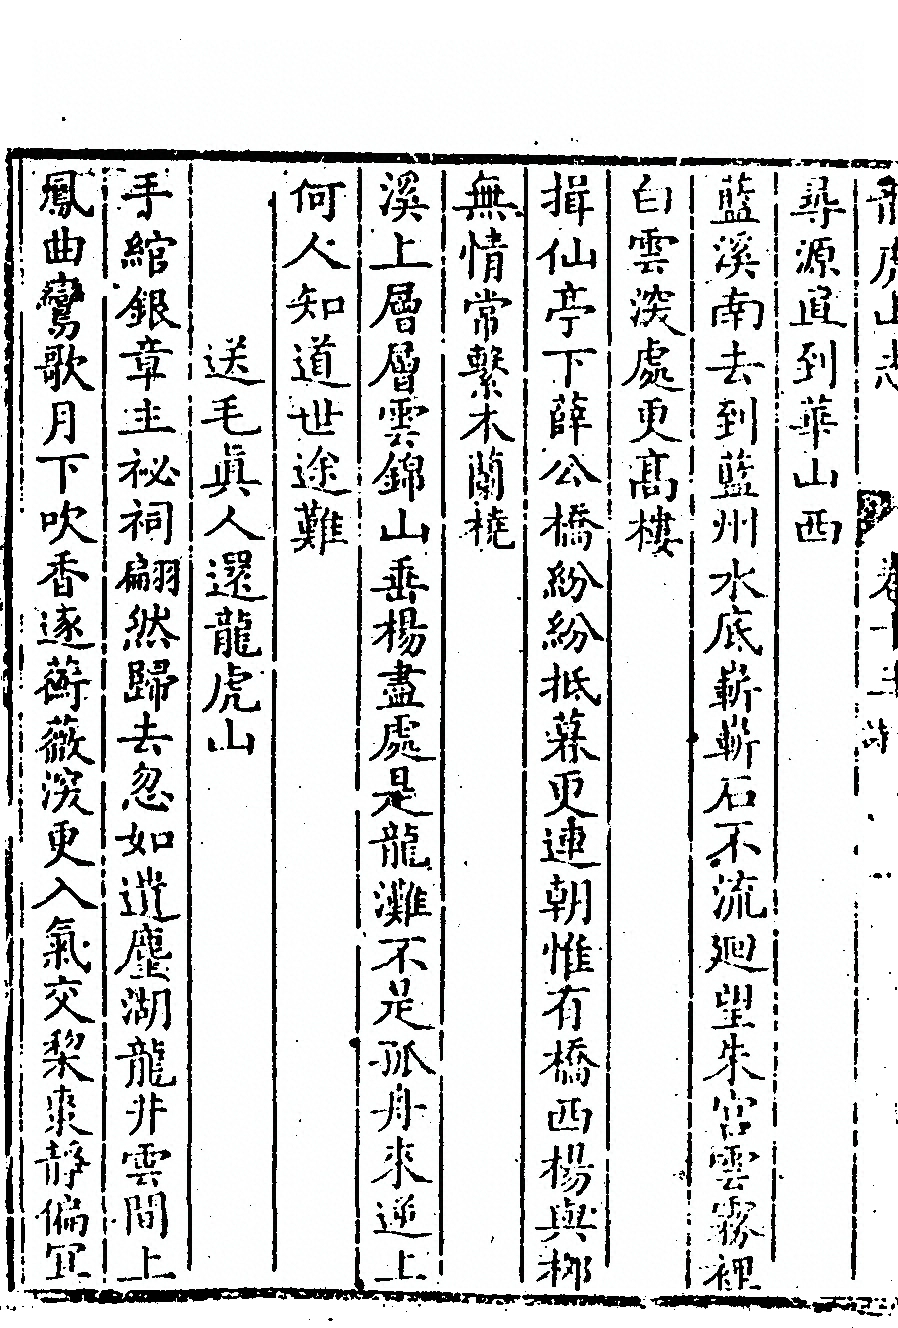 龍虎山志　卷十三
尋源直到華山西
藍溪南去到藍州水底嶄嶄石不流廻望朱宮雲霧裡
白雲深處更高樓
揖仙亭下薛公橋紛紛抵暮更連朝惟有橋西楊與柳
無情常繫木蘭橈
溪上層層雲錦山垂楊盡處是龍灘不是孤舟來逆上
何人知道世途難
送毛眞人還龍虎山
手綰銀章主祕祠翩然歸去忽如遺塵湖龍井雲間上
鳳曲鸞歌月下吹香逐薔薇深更入氣交棃棗靜偏宜